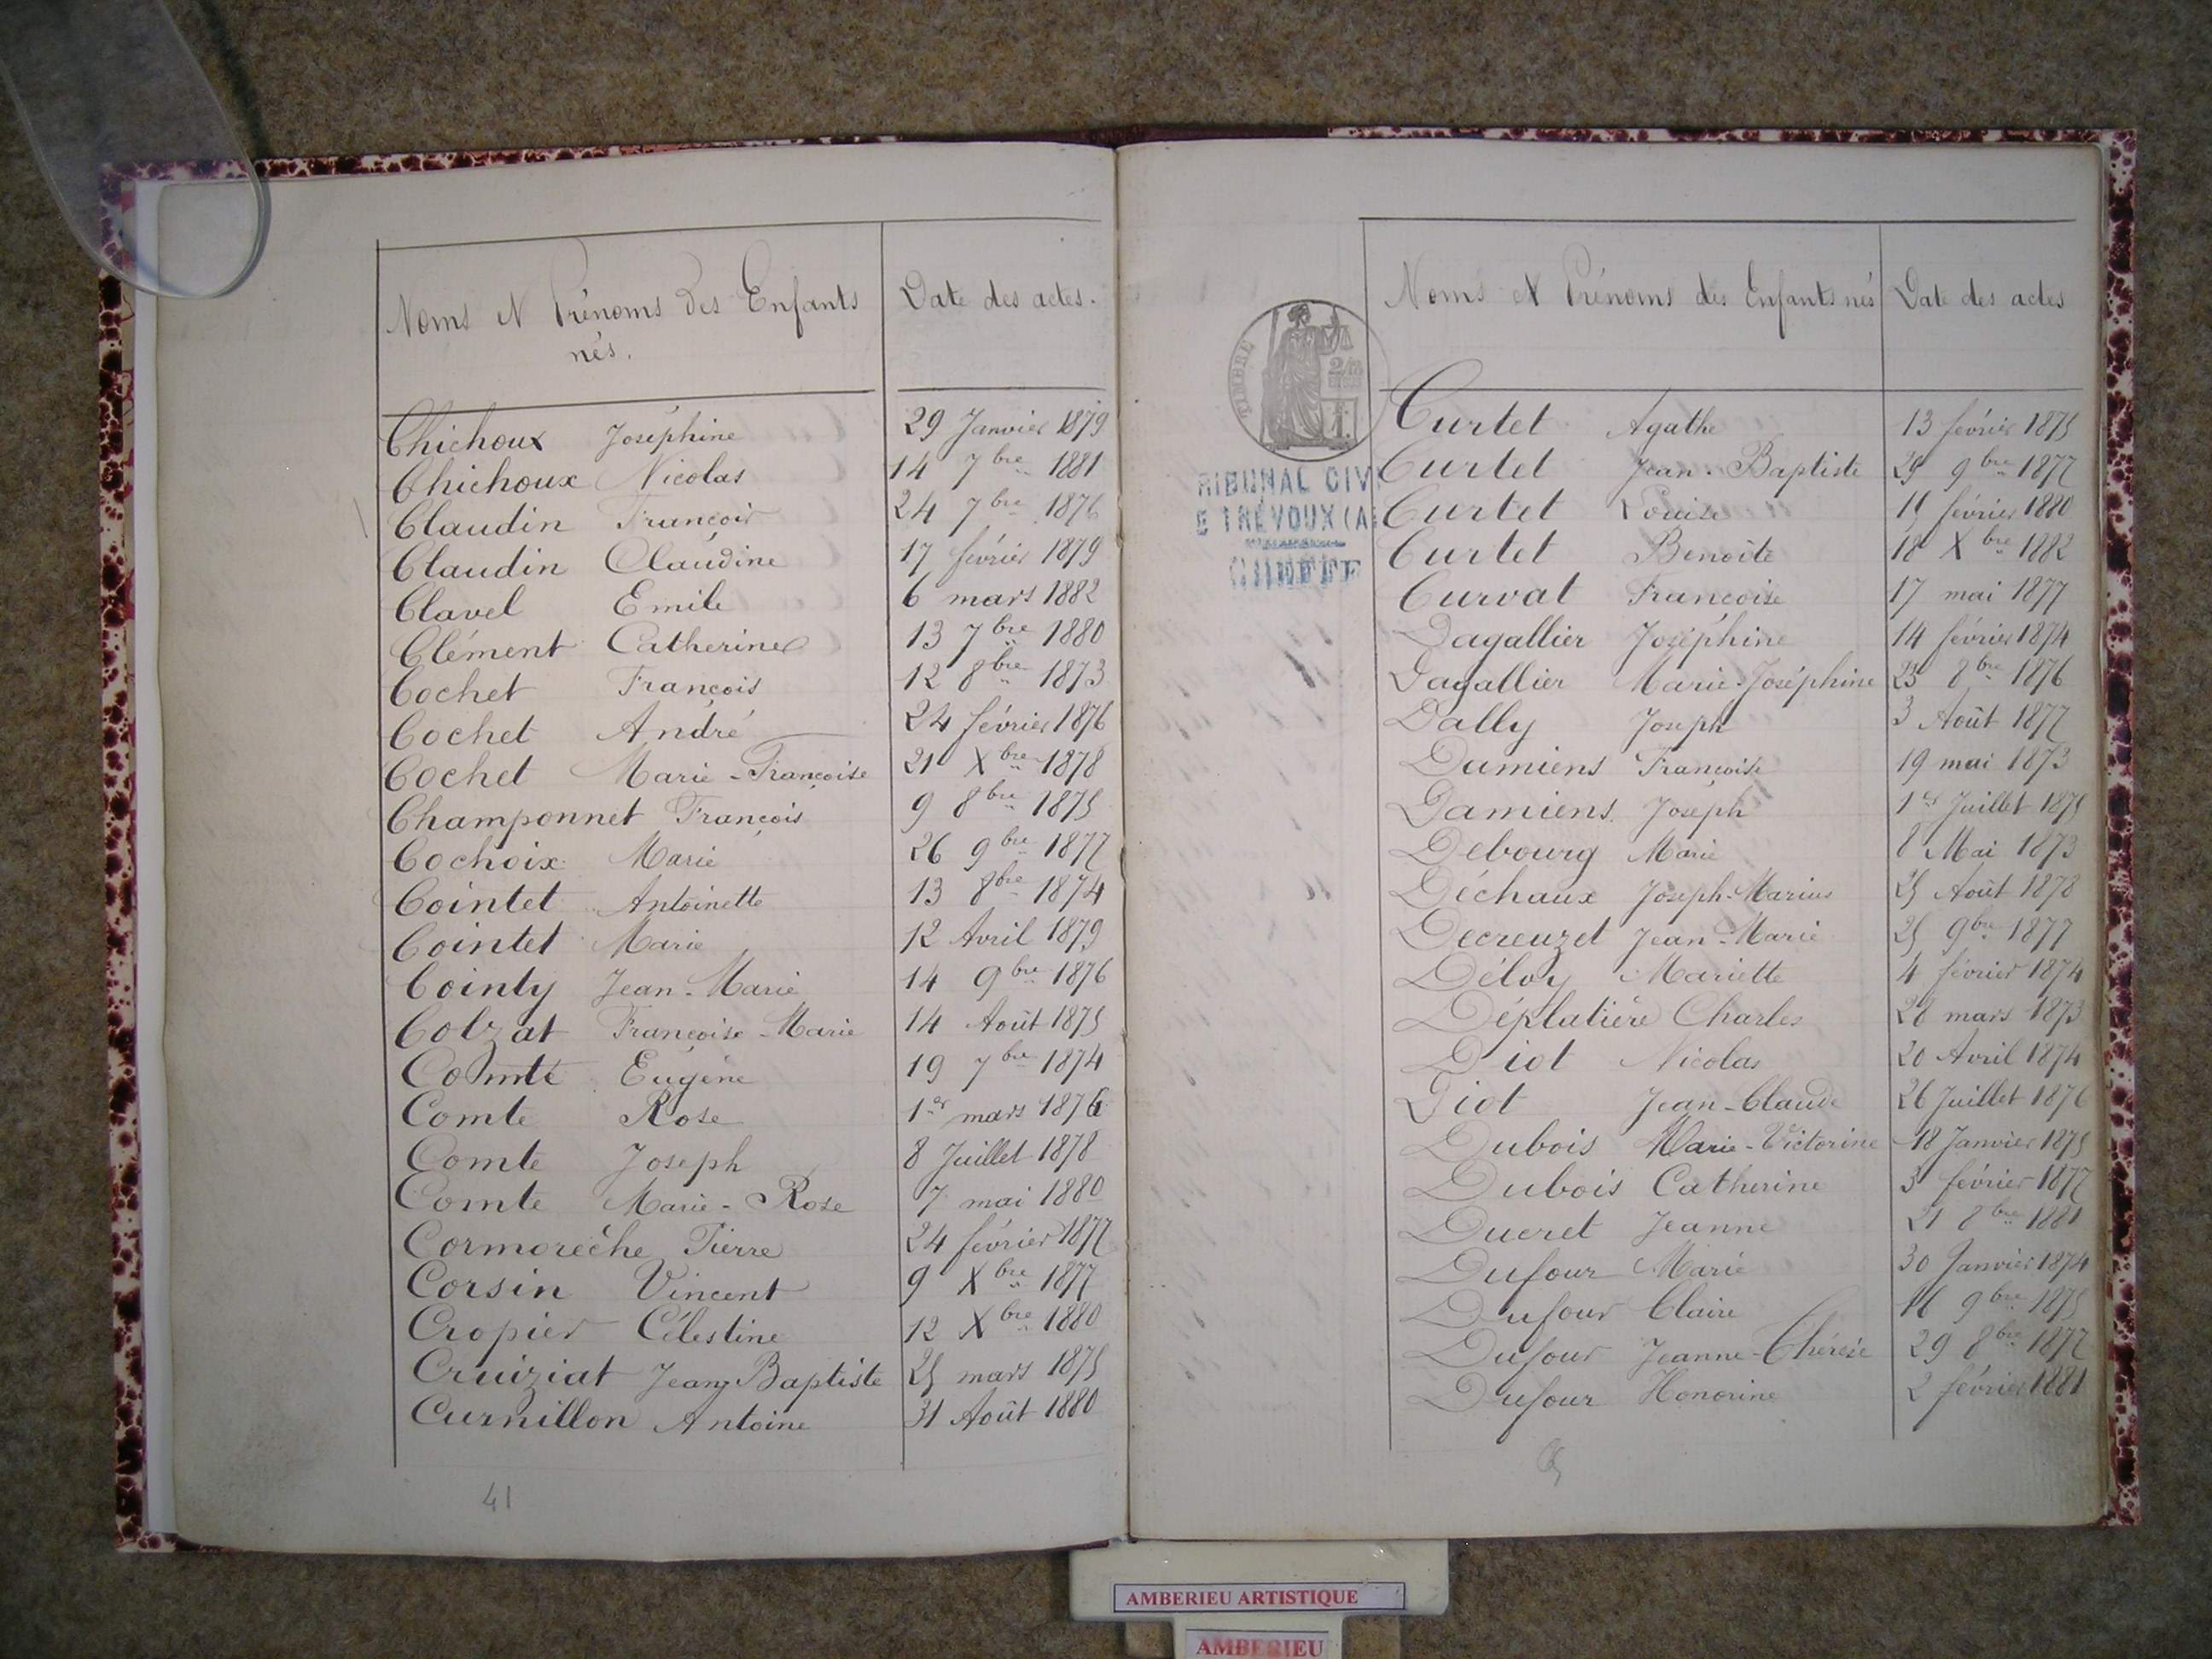 Noms et Prénoms des Enfants
nés.
Date des actes.
Chichoux Joséphine 29 Janvier 1879
Chichoux Nicolas 14 7bre 1881
Claudin François 24 7bre 1876
Claudin Claudine 17 février 1879
Clavel Emile 6 mars 1882
Clément Catherine 13 7bre 1880
Cochet François 12 8bre 1873
Cochet André 24 février 1876
Cochet Marie-Françoise 21 Xbre 1878
Champonnet François 9 8bre 1875
Cochoix Marie 26 9bre 1877
Cointet Antoinette 13 8bre 1874
Cointet Marie 12 Avril 1879
Cointy Jean-Marie 14 9bre 1876
Colzat Françoise-Marie 14 Août 1875
Comte Eugène 19 7bre 1874
Comte Rose 1er mars 1876
Comte Joseph 8 Juillet 1878
Comte Marie-Rose 7 mai 1880
Cormorèche Pierre 24 février 1877
Corsin Vincent 9 Xbre 1877
Cropier Célestine 12 Xbre 1880
Cruiziat Jean Baptiste 25 mars 1875
Curnillon Antoine 31 Août 1880
41
Noms et Prénoms des Enfants nés
Date des actes
TIMBRE
RIBUNAL CIV
E TREVOUX (A
GREFFE
Curtet Agathe 13 février 1875
Curtet Jean-Baptiste 29 9bre 1877
Curtet Louise 15 février 1880
Curtet Benoîte 18 Xbre 1882
Curvat Françoise 17 mai 1877
Dagallier Joséphine 14 février 1874
Dagallier Marie-Joséphine 23 8bre 1876
Dally Joseph 3 Août 1877
Damiens Françoise 19 mai 1873
Damiens Joseph 1er Juillet 1875
Debourg Marie 8 Mai 1873
Déchaux Joseph-Marius 25 Août 1878
Decreuzet Jean-Marie 25 9bre 1877
Déloy Mariette 4 février 1874
Déplatière Charles 28 mars 1873
Diot Nicolas 20 Avril 1874
Diot Jean-Claude 26 Juillet 1876
Dubois Marie-Victorine 18 Janvier 1875
Dubois Catherine 3 février 1877
Ducret Jeanne 21 8bre 1881
Dufour Marie 30 Janvier 1874
Dufour Claire 16 9bre 1875
Dufour Jeanne-Thérèse 29 8bre 1877
Dufour Honorine 2 février 1881
AMBERIEU ARTISTIQUE
AMBERIEU